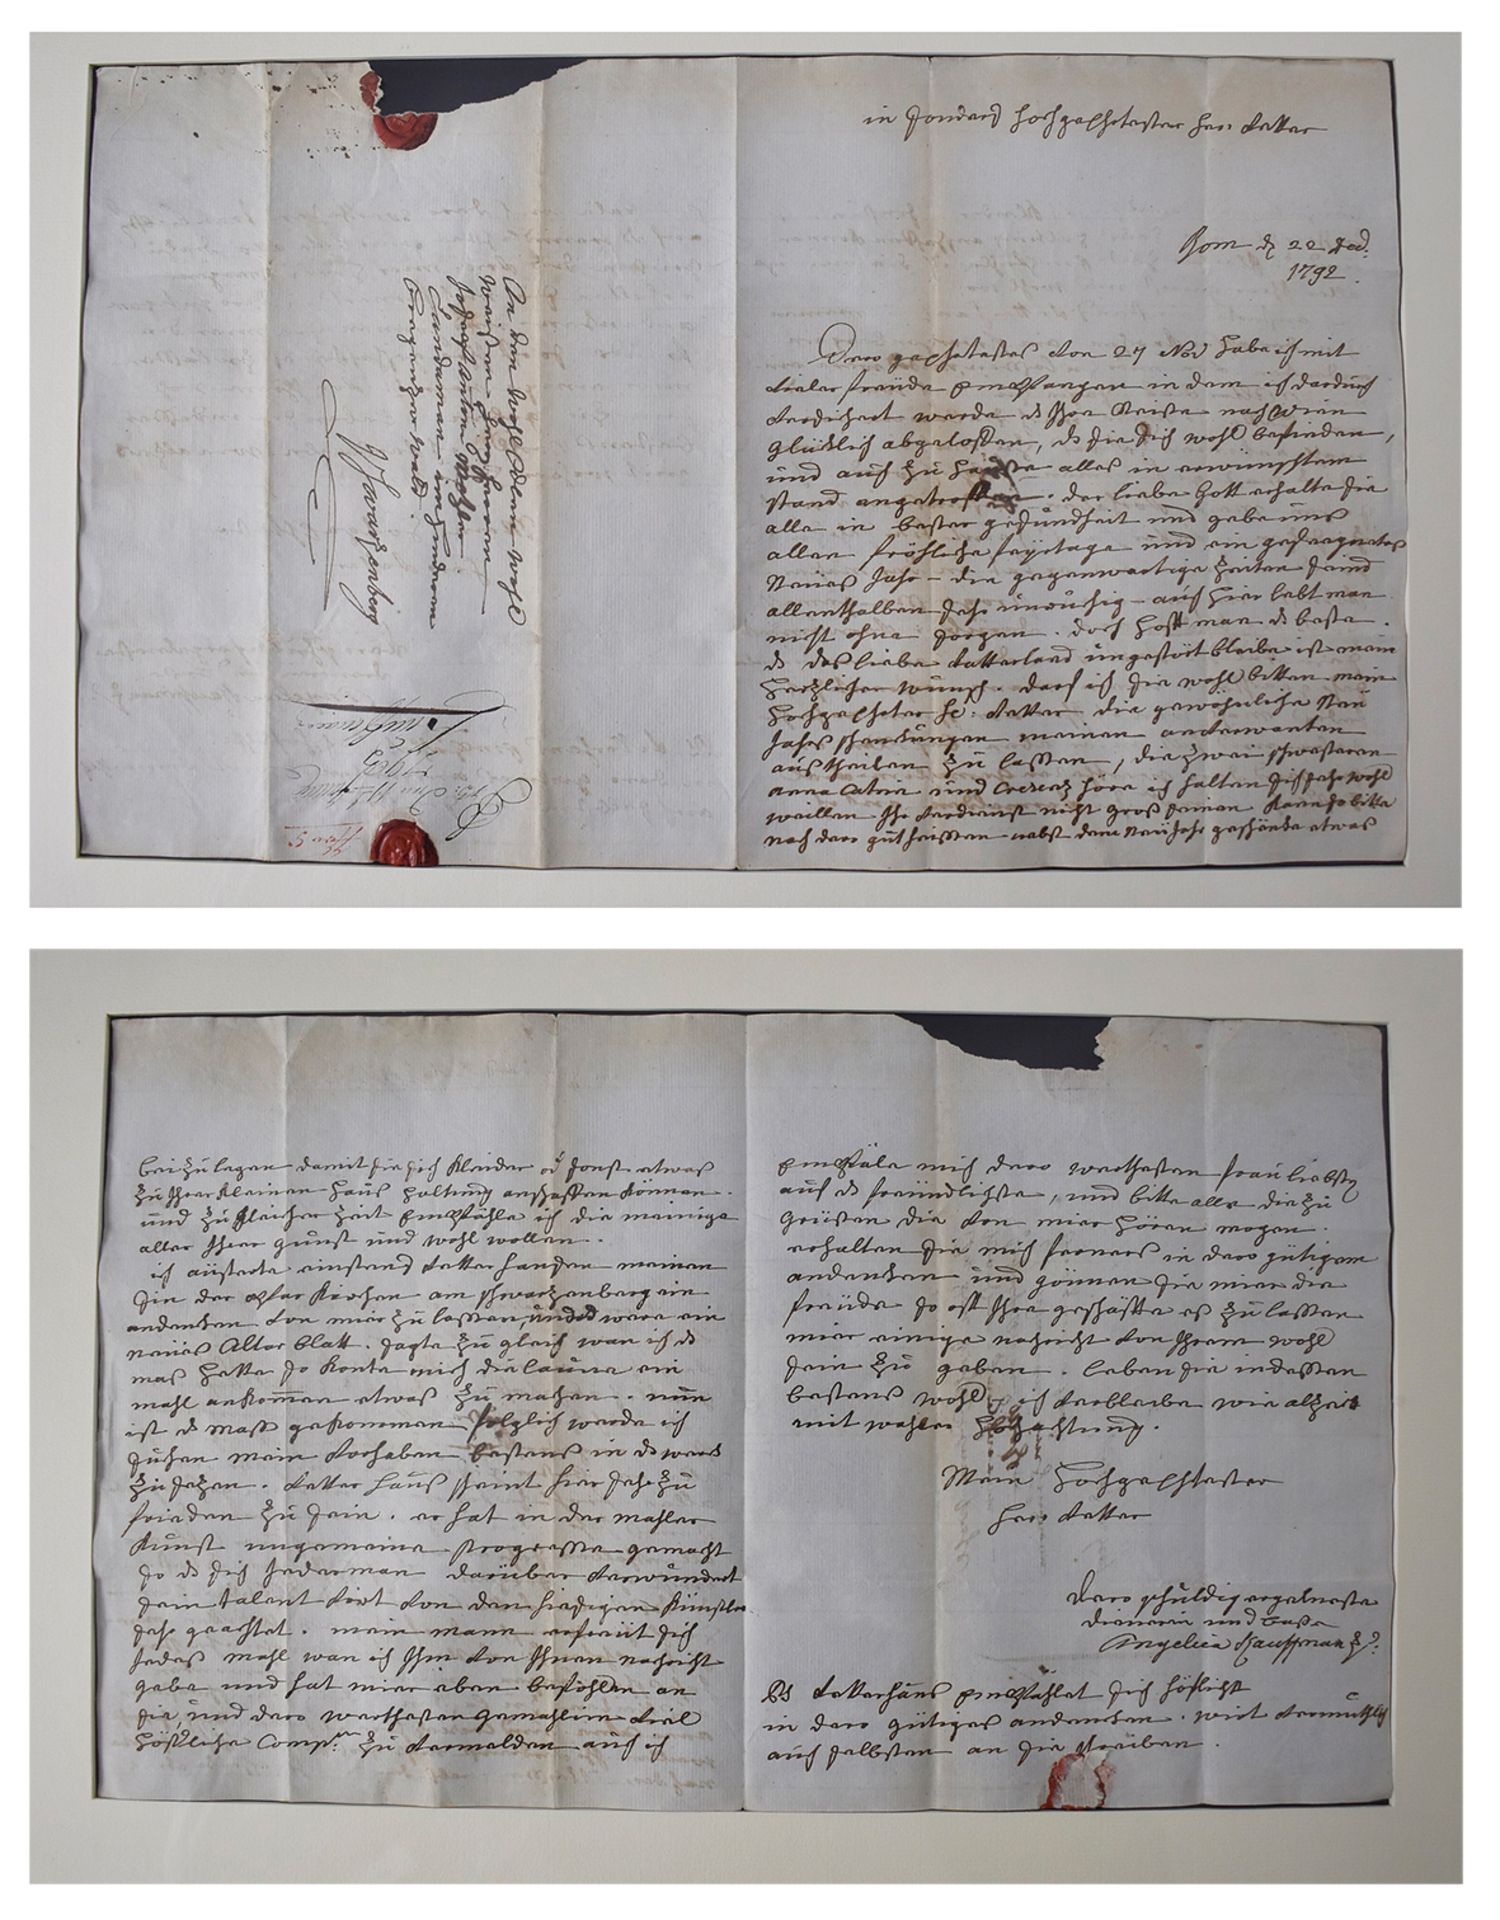 in sonders hochgeehrtester Herr Vetter
Rom d 22 Dec:
1792.
Dero geehrtestes von 27 Nov habe ich mit
vieler freüde empfangen in dem ich dardurch
versichert werde ds Ihre Reise nach Wien
glücklich abgeloffen, ds sie sich wohl befinden,
und auch zu Hause alles in erwünschtem
stand angetroffen. der liebe Gott erhalte sie
alle in bester gesundheit und gebe uns
allen fröhliche feÿrtage und ein gesegnetes
Neües Jahr – die gegenwartige Zeiten seind
allenthalben sehr unruhig – auch hier lebt man
nicht ohne sorgen. doch hofft man ds beste.
ds das liebe Vatterland ungestört bleibe ist mein
herzlicher wunsch. darf ich sie wohl bitten mein
hochgeehrter H: Vetter die gewöhnliche Neü
Jahrs schenkungen meinen anverwanten
aus theilen zu lassen, die zwei schwesteren
Anna Catrin und Cresenz höre ich halten sich sehr wohl
weillen Ihr verdienst nicht gros seinen kann so bitte
nach dero gutheissen nebst dem Neü Jahr geschänke etwas
An den Wohl Edlen Wohl
weisen Herrn
Joseph Anton Mezler
Landaman im Innern
Bregenzer wald.
Schwarzenberg
beizulegen damit sie sich kleider od sonst etwas
zu Ihrer kleinen Haus haltung anschaffen können.
und zu gleicher Zeit empfähle ich die meinige
aller Ihrer gunst und wohl wollen.
ich äüserte einstens Vetter Hansen meinen
Sin der Pfar Kirchen am schwarzenberg ein
andencken von mir zu lassen, und ds were ein
neües Altar blatt. sagte zu gleich wan ich ds
mas hette so konte mich die laune ein
mahl ankommen etwas zu machen. nun
ist ds Mass gekommen folglich werde ich
suchen mein Vorhaben bestens in ds werck
zu sezen. Vetter Hans scheint hier sehr zu
frieden zu sein. er hat in der mahler
kunst ungemeine progresse gemacht
so ds sich Jederman darüber verwundert
sein talent wirt von den hiesigen Künstler
sehr geachtet. mein mann erfreüt sich
Jedes mahl wan ich Ihm von Ihnen nachricht
gebe und hat mir eben befohlen an
sie, und dero werthesten Gemahlin viel
höfliche Comp.ten zu vermelden auch ich
empfäle mich dero werthesten frau liebste
auf ds freündlichste, und bitte alle die zu
grüssen die von mir hören mogen.
erhalten sie mich ferners in dero gütigem
andencken und gönnen sie mir die
freüde so offt Ihre geschäffte es zu lassen
mir einige nachricht von Ihrem wohl
sein zu geben. leben sie indessen
bestens wohl, ich verbleibe wie alzeit
mit wahrer Hochachtung.
Mein Hochgeehrtester
Herr Vetter
Dero schuldig ergebneste
dienerin und Base
Angelica Kauffman Z?:
PS Vetter Hans empfählet sich höflichst
in dero gütiges andencken. wirt vermuthlich
auch selbsten an sie schreiben.